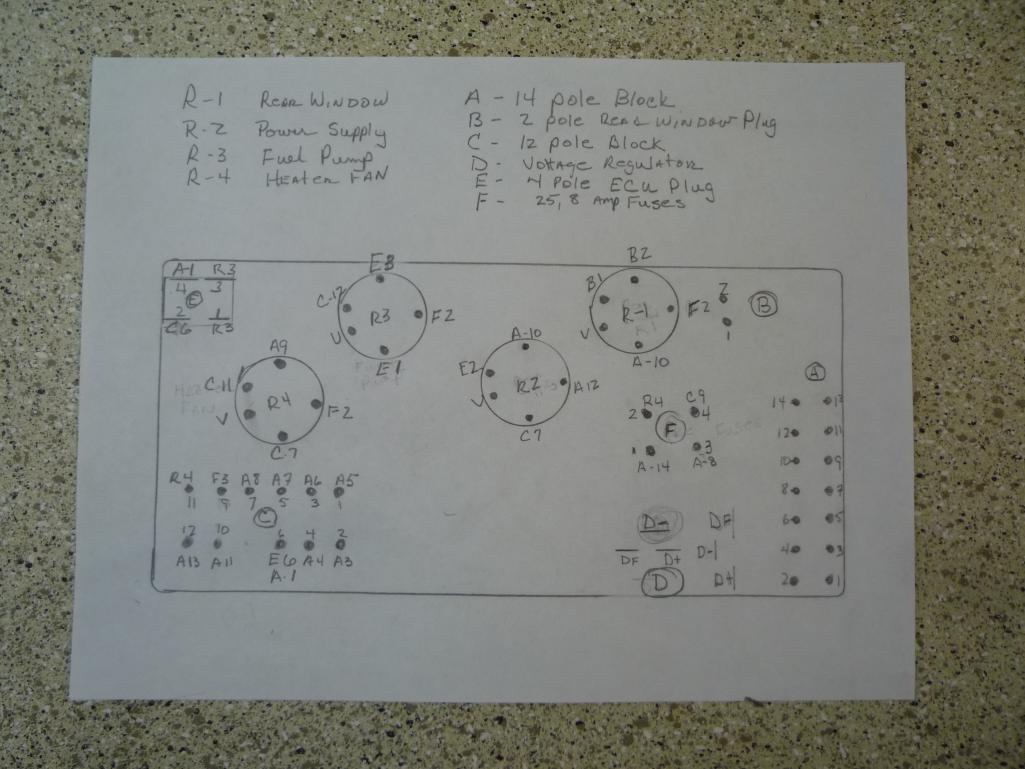 R-1 Rear Window
R-2 Power Supply
R-3 Fuel Pump
R-4 Heater FAN
A - 14 pole Block
B - 2 pole Rear Window Plug
C - 12 pole Block
D - Voltage Regulator
E - 4 Pole ECU Plug
F - 25, 8 Amp Fuses
A-1 R3
4 3
E
2 1
C6 R3
E3
C-12
R3
F2
V
E1
B2
B1
R-1
F2
V
A-10
2
B
1
A9
C-11
R4
F2
V
C-7
HEATER FAN
A-10
E2
R2
A12
V
C7
R4 C9
2 4
F
Fuses
1 3
A-14 A-8
A
14 13
12 11
10 9
8 7
6 5
4 3
2 1
R4 F3 A8 A7 A6 A5
11 9 7 5 3 1
C
12 10 6 4 2
A13 A11 E6 A4 A3
A-1
D- DF
DF D+ D-
D D+